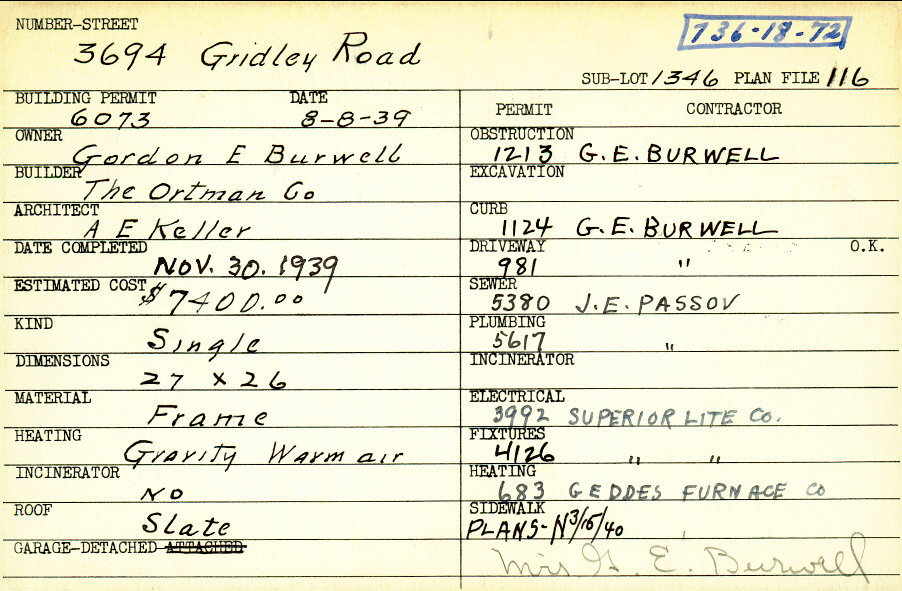 NUMBER-STREET
3694 Gridley Road
736-18-72
SUB-LOT 1346 PLAN FILE 116
BUILDING PERMIT DATE
6073 8-8-39
OWNER
Gordon E Burwell
BUILDER
The Ortman Co
ARCHITECT
A E Keller
DATE COMPLETED
NOV. 30. 1939
ESTIMATED COST
$7400.00
KIND
Single
DIMENSIONS
27 x 26
MATERIAL
Frame
HEATING
Gravity Warm air
INCINERATOR
NO
ROOF
Slate
GARAGE-DETACHED ATTACHED
PERMIT CONTRACTOR
OBSTRUCTION
1213 G.E. BURWELL
EXCAVATION
CURB
1124 G.E. BURWELL
DRIVEWAY O.K.
981 "
SEWER
5380 J.E. PASSOV
PLUMBING
5617 "
INCINERATOR
ELECTRICAL
3992 SUPERIOR LITE CO.
FIXTURES
4126 " "
HEATING
683 GEDDES FURNACE CO
SIDEWALK
PLANS- N 3/15/40
Mrs G. E. Burwell